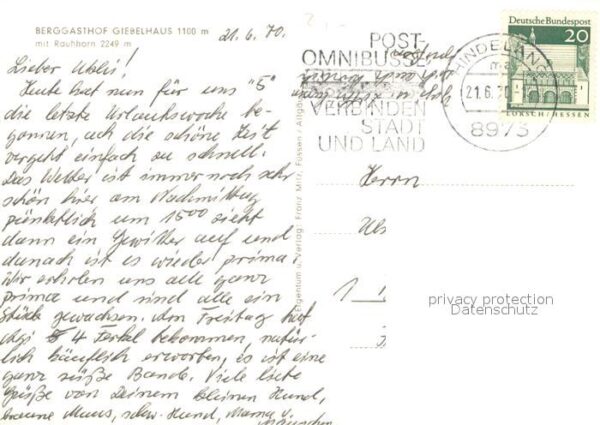 BERGGASTHOF GIEBELHAUS 1100 m
mit Rauhhorn 2249 m
21.6.70.
Lieber
Heute hat nun für uns "5"
die letzte Urlaubswoche be-
gonnen, ach die schöne Zeit
vergeht einfach zu schnell.
Das Wetter ist immer noch sehr
schön hier am Nachmittag
pünktlich um 1500 zieht
dann ein Gewitter auf und
danach ist es wieder prima.
Wir erholen uns alle ganz
prima und sind alle ein
Stück gewachsen. Am Freitag hat
4 Ferkel bekommen, natür-
lich käuflich erworben, es ist eine
ganz süße Bande. Viele liebe
Grüße von Deinem kleinen Hund,
braune Maus, schw. Hund, Mama u.
Eigentum u. Verlag: Franz Milz, Füssen / Allgäu
POST-
OMNIBUSSE
VERBINDEN
STADT
UND LAND
HINDELANG
21.6.70
8973
Deutsche Bundespost
20
LORSCH/HESSEN
Herrn
privacy protection
Datenschutz